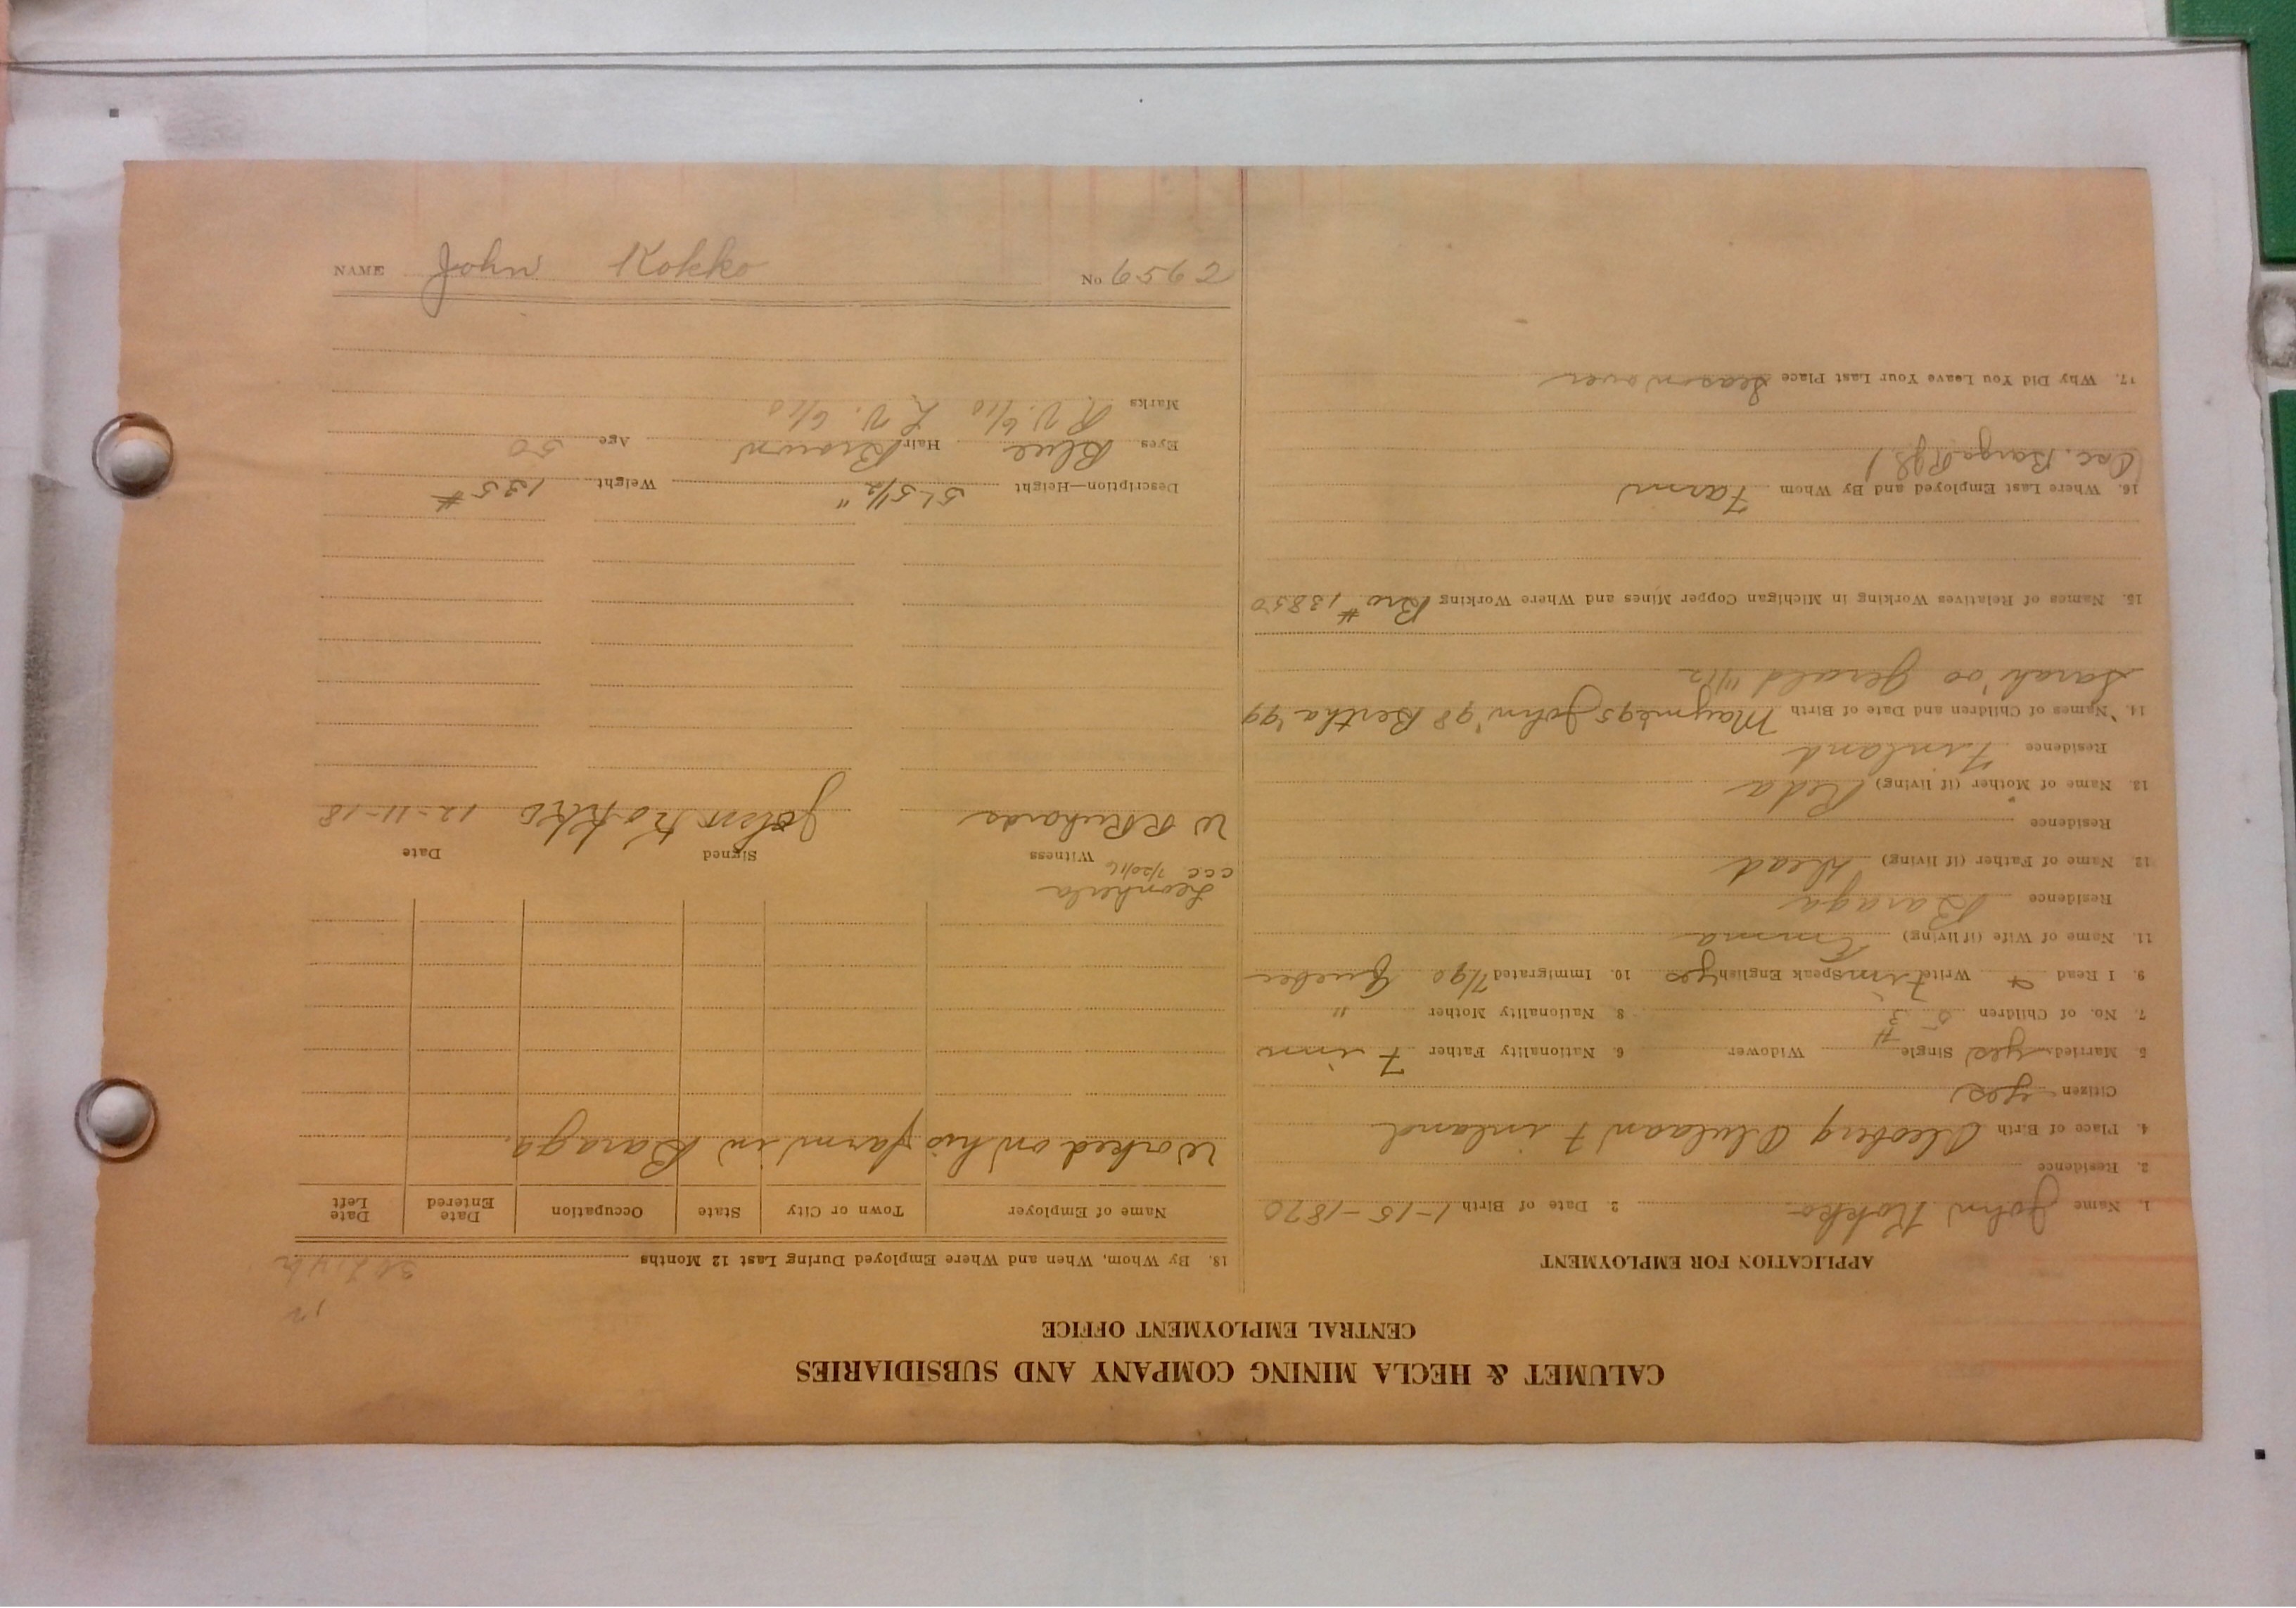 CALUMET & HECLA MINING COMPANY AND SUBSIDIARIES
CENTRAL EMPLOYMENT OFFICE
APPLICATION FOR EMPLOYMENT
1. Name John Kokko 2. Date of Birth 1-15-1870
3. Residence
4. Place of Birth Finland
Citizen yes
5. Married yes Single Widower 6. Nationality Father Finn
7. No. of Children 5 8. Nationality Mother "
9. I Read + Write Finn Speak English yes 10. Immigrated 7/90 Quebec
11. Name of Wife (if living) Emma
Residence Baraga
12. Name of Father (if living) Dead
Residence
13. Name of Mother (if living) Reda
Residence Finland
14. Names of Children and Date of Birth Mayme 95 John '98 Bertha '99
Sarah '00 Gerald 11/12
15. Names of Relatives Working in Michigan Copper Mines and Where Working Bro # 13850
16. Where Last Employed and By Whom Farm
17. Why Did You Leave Your Last Place Season over
18. By Whom, When and Where Employed During Last 12 Months
Name of Employer Town or City State Occupation Date Entered Date Left
Worked on his farm in Baraga.
CCC 7/20/16
Witness Signed Date
W R Richards John Kokko 12-11-18
Description—Height 5' 5 1/2" Weight 135 #
Eyes Blue Hair Brown Age 50
Marks R.V. 6/10 L.V. 6/10
NAME John Kokko No 6562